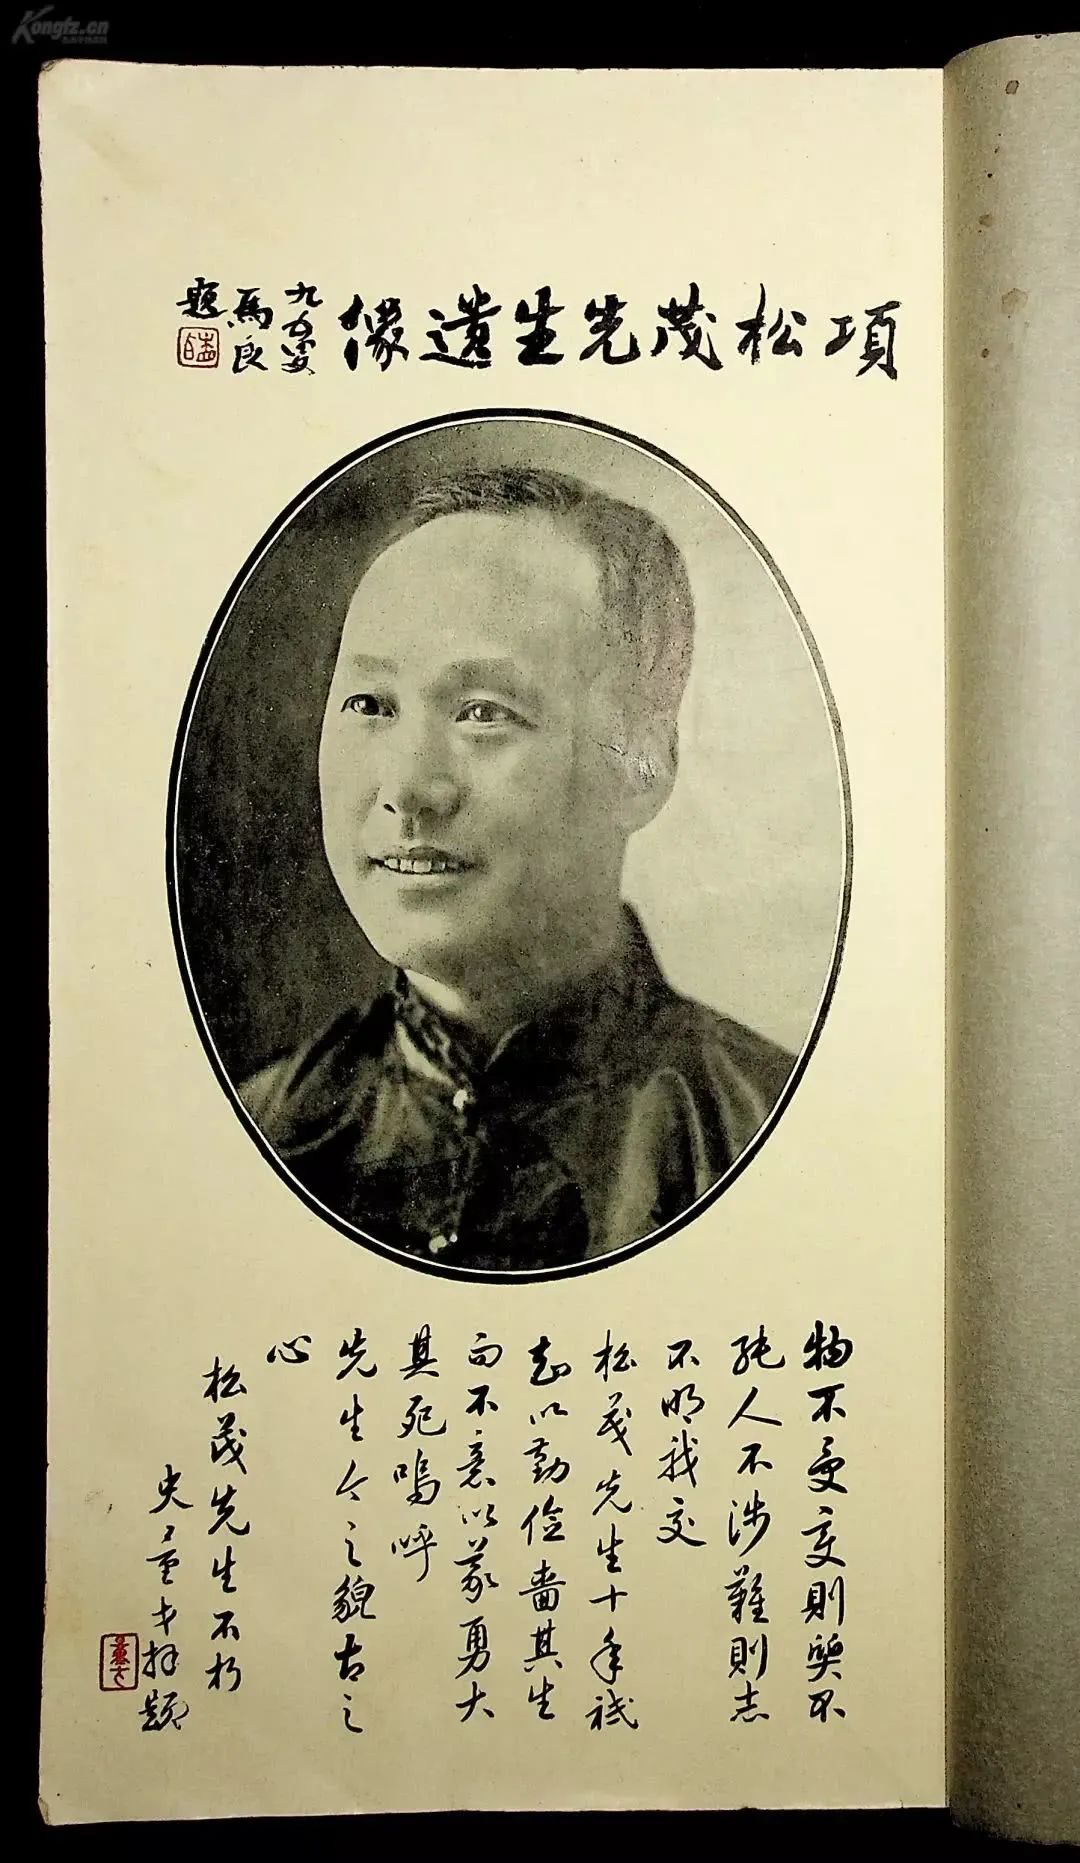 Kongfz.cn
項松茂先生遺像
九五叟
馬良
題
物不受變則不
純人不涉難則志
不明我交
松茂先生十年祗
知以勤儉嗇其生
而不意以義勇大
其死嗚呼
先生今之貌古之
心
松茂先生不朽
史量才拜題
量才